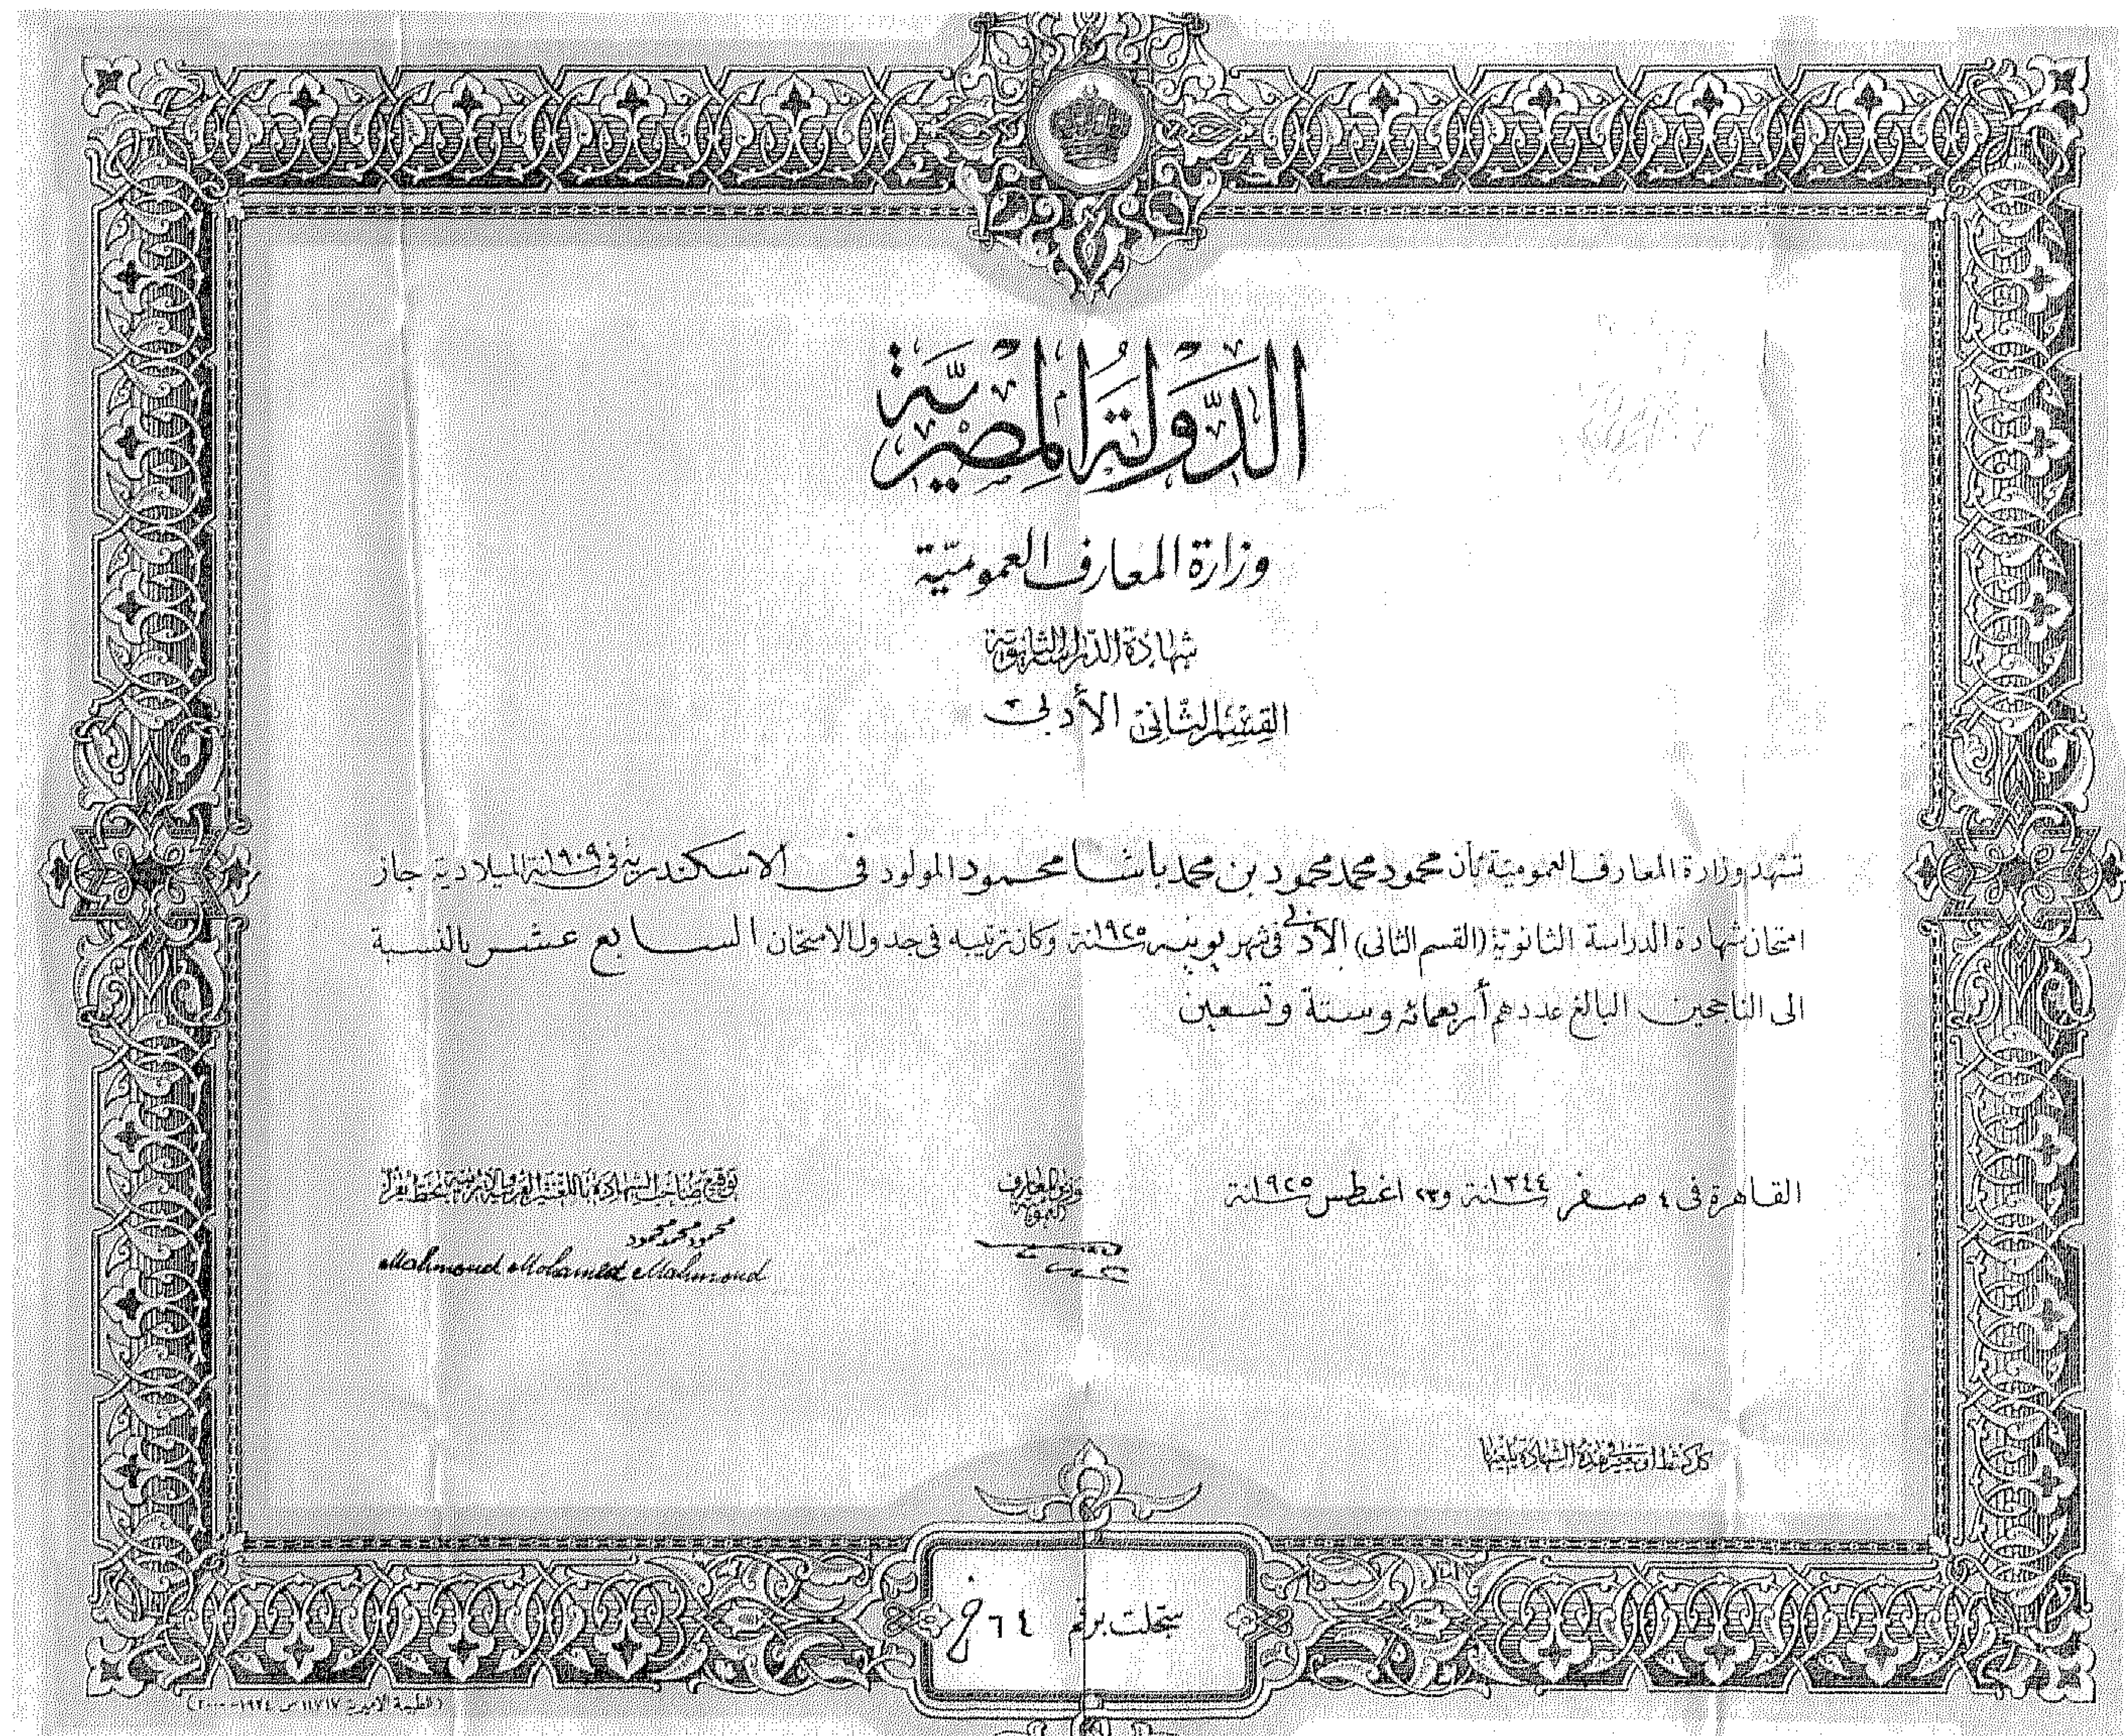 الدولة المصرية
وزارة المعارف العمومية
شهادة الدراسة الثانوية
القسم الثانى الأدبى
تشهد وزارة المعارف العمومية بأن محمود محمد محمود بن محمد باشا محمود المولود فى الاسكندرية فى سنة ١٩٠٩ الميلادية جاز
امتحان شهادة الدراسة الثانوية (القسم الثانى) الأدبى فى شهر يونيه سنة ١٩٢٥ وكان ترتيبه فى جدول الامتحان السابع عشر بالنسبة
الى الناجحين البالغ عددهم أربعمائة وستة وتسعين
القاهرة فى ٤ صفر سنة ١٣٤٤ و٢٣ اغسطس سنة ١٩٢٥
وزير المعارف
العمومية
توقيع صاحب الشهادة باللغتين العربية والافرنجية بخط يقرأ
محمود محمد محمود
Mahmoud Mohamed Mahmoud
كل كشط او تغيير فى هذه الشهادة يلغيها
سجلت برقم ٦٤
(المطبعة الاميرية ١١٧١٧ س ١٩٢٤-٢٠٠٠)